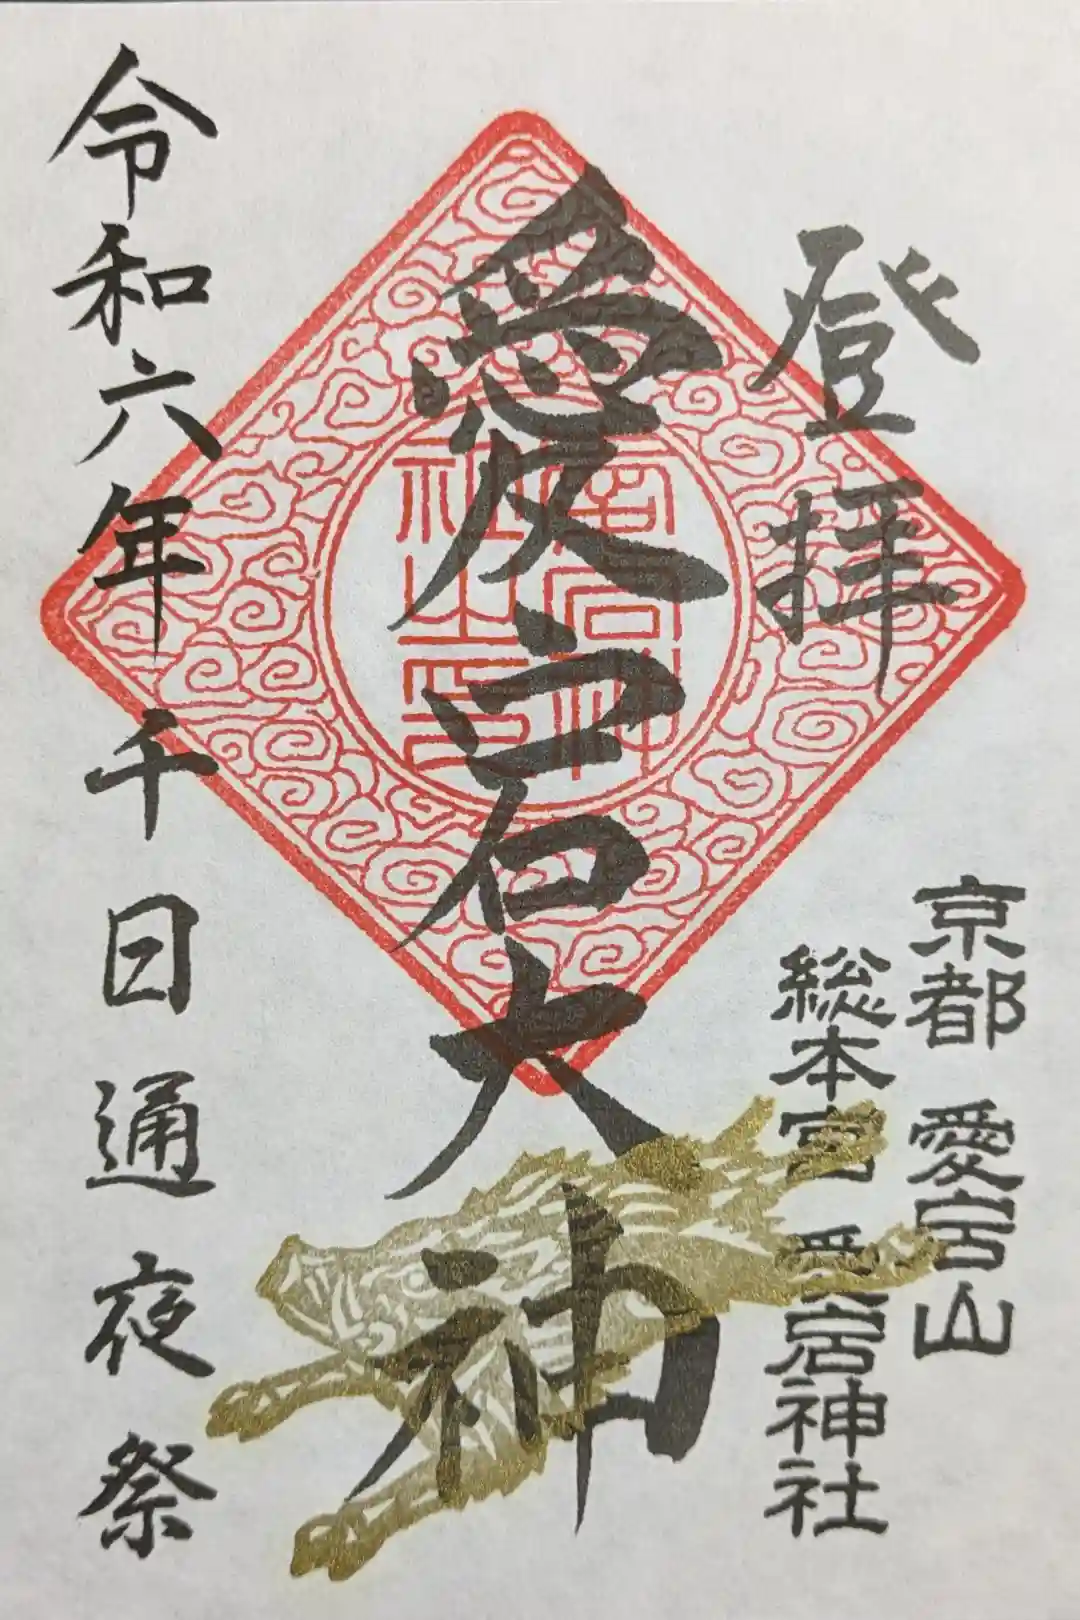 登拝
京都 愛宕山
総本宮 愛宕神社
愛宕大神
愛宕神社之印
令和六年千日通夜祭